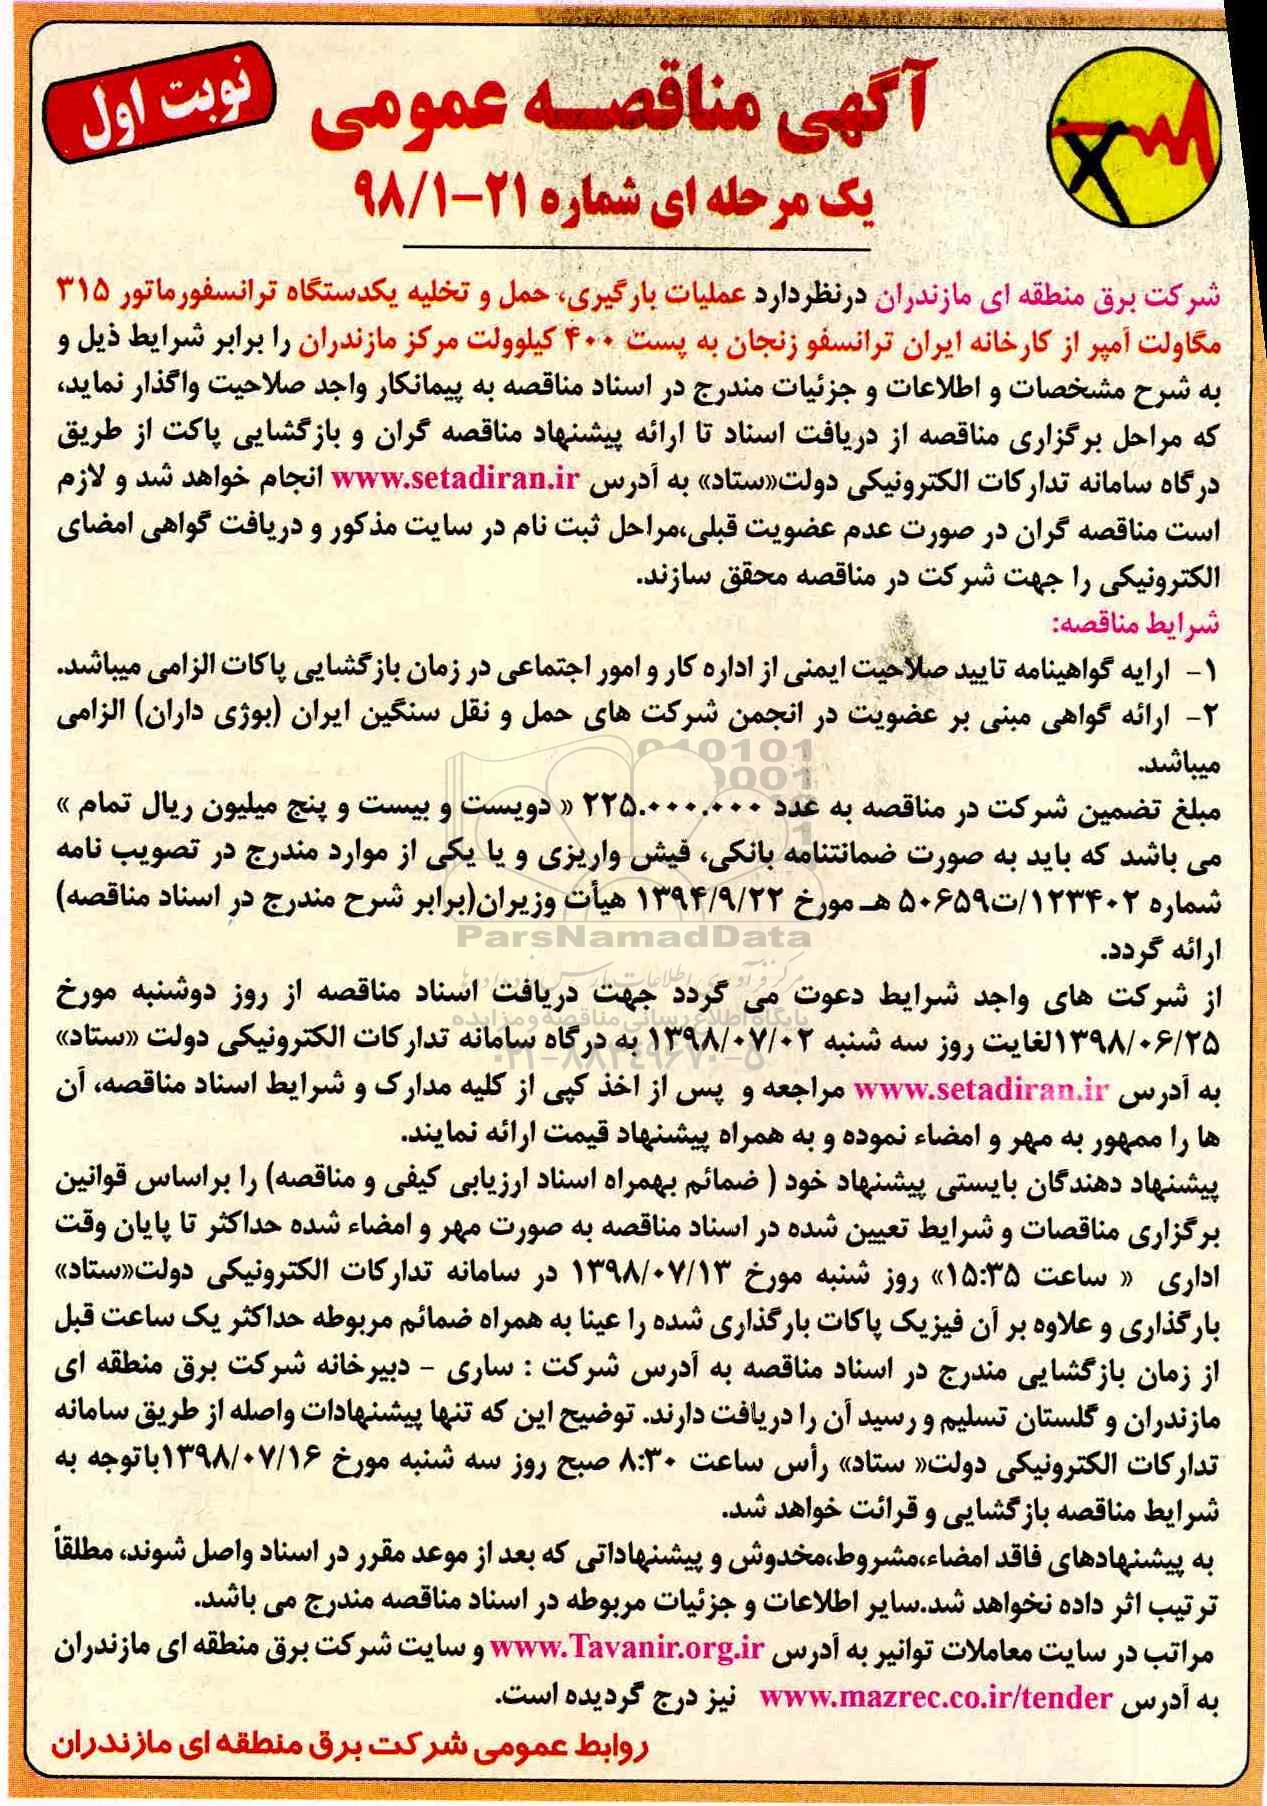 نوبت اول
آگهی مناقصه عمومی
یک مرحله ای شماره ۲۱-۹۸/۱
شرکت برق منطقه ای مازندران درنظردارد عملیات بارگیری، حمل و تخلیه یکدستگاه ترانسفورماتور ۳۱۵
مگاولت آمپر از کارخانه ایران ترانسفو زنجان به پست ۴۰۰ کیلوولت مرکز مازندران را برابر شرایط ذیل و
به شرح مشخصات و اطلاعات و جزئیات مندرج در اسناد مناقصه به پیمانکار واجد صلاحیت واگذار نماید،
که مراحل برگزاری مناقصه از دریافت اسناد تا ارائه پیشنهاد مناقصه گران و بازگشایی پاکت از طریق
درگاه سامانه تدارکات الکترونیکی دولت«ستاد» به آدرس www.setadiran.ir انجام خواهد شد و لازم
است مناقصه گران در صورت عدم عضویت قبلی،مراحل ثبت نام در سایت مذکور و دریافت گواهی امضای
الکترونیکی را جهت شرکت در مناقصه محقق سازند.
شرایط مناقصه:
۱- ارایه گواهینامه تایید صلاحیت ایمنی از اداره کار و امور اجتماعی در زمان بازگشایی پاکات الزامی میباشد.
۲- ارائه گواهی مبنی بر عضویت در انجمن شرکت های حمل و نقل سنگین ایران (بوژی داران) الزامی
میباشد.
مبلغ تضمین شرکت در مناقصه به عدد ۲۲۵.۰۰۰.۰۰۰ « دویست و بیست و پنج میلیون ریال تمام »
می باشد که باید به صورت ضمانتنامه بانکی، فیش واریزی و یا یکی از موارد مندرج در تصویب نامه
شماره ۱۲۳۴۰۲/ت۵۰۶۵۹ هـ مورخ ۱۳۹۴/۹/۲۲ هیأت وزیران(برابر شرح مندرج در اسناد مناقصه)
ارائه گردد.
از شرکت های واجد شرایط دعوت می گردد جهت دریافت اسناد مناقصه از روز دوشنبه مورخ
۱۳۹۸/۰۶/۲۵لغایت روز سه شنبه ۱۳۹۸/۰۷/۰۲ به درگاه سامانه تدارکات الکترونیکی دولت «ستاد»
به آدرس www.setadiran.ir مراجعه و پس از اخذ کپی از کلیه مدارک و شرایط اسناد مناقصه، آن
ها را ممهور به مهر و امضاء نموده و به همراه پیشنهاد قیمت ارائه نمایند.
پیشنهاد دهندگان بایستی پیشنهاد خود ( ضمائم بهمراه اسناد ارزیابی کیفی و مناقصه) را براساس قوانین
برگزاری مناقصات و شرایط تعیین شده در اسناد مناقصه به صورت مهر و امضاء شده حداکثر تا پایان وقت
اداری « ساعت ۱۵:۳۵» روز شنبه مورخ ۱۳۹۸/۰۷/۱۳ در سامانه تدارکات الکترونیکی دولت«ستاد»
بارگذاری و علاوه بر آن فیزیک پاکات بارگذاری شده را عینا به همراه ضمائم مربوطه حداکثر یک ساعت قبل
از زمان بازگشایی مندرج در اسناد مناقصه به آدرس شرکت : ساری - دبیرخانه شرکت برق منطقه ای
مازندران و گلستان تسلیم و رسید آن را دریافت دارند. توضیح این که تنها پیشنهادات واصله از طریق سامانه
تدارکات الکترونیکی دولت« ستاد» رأس ساعت ۸:۳۰ صبح روز سه شنبه مورخ ۱۳۹۸/۰۷/۱۶باتوجه به
شرایط مناقصه بازگشایی و قرائت خواهد شد.
به پیشنهادهای فاقد امضاء،مشروط،مخدوش و پیشنهاداتی که بعد از موعد مقرر در اسناد واصل شوند، مطلقاً
ترتیب اثر داده نخواهد شد.سایر اطلاعات و جزئیات مربوطه در اسناد مناقصه مندرج می باشد.
مراتب در سایت معاملات توانیر به آدرس www.Tavanir.org.ir و سایت شرکت برق منطقه ای مازندران
به آدرس www.mazrec.co.ir/tender نیز درج گردیده است.
روابط عمومی شرکت برق منطقه ای مازندران
ParsNamadData
پایگاه اطلاع رسانی مناقصه و مزایده
۰۲۱-۸۸۳۴۹۶۷۰-۵